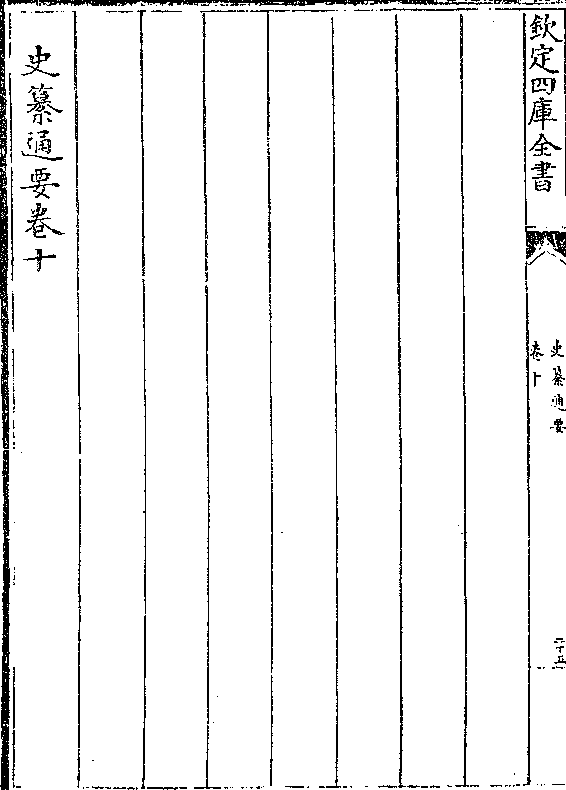 欽定四庫全書
史纂通要
卷十
二十五
史纂通要卷十